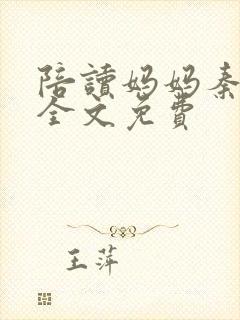 陪讀媽媽秦
全文免費
王萍